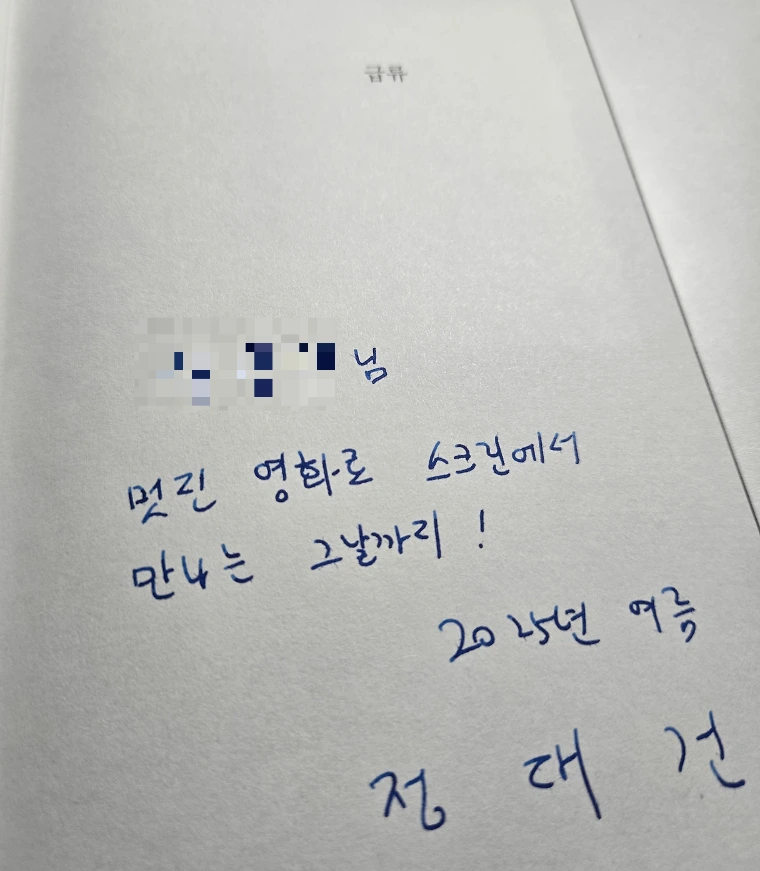 급류
님
멋진 영화로 스크린에서
만나는 그날까지!
2025년 여름
정 대 건